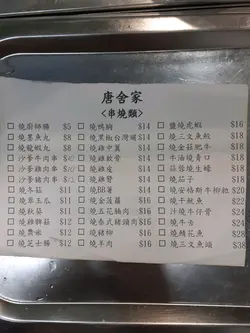 唐舍家
<串燒類>
□ 燒廚師腸 $5 □ 燒鴨胸 $14 □ 鹽燒虎蝦 $16
□ 燒墨魚丸 $8 □ 燒黑椒台灣腸 $14 □ 燒三文魚鮫 $18
□ 燒龍蝦丸 $8 □ 燒雞中翼 $14 □ 燒金菇肥牛 $18
□ 沙爹牛肉串 $ □ 燒雞軟骨 $14 □ 牛油燒青口 $18
□ 沙爹雞肉串 $ □ 燒雞皮 $14 □ 蒜蓉燒生蠔 $18
□ 沙爹豬肉串 $ □ 燒雞腎 $14 □ 燒茄子 $18
□ 燒冬菇 $11 □ 燒BB薯 $14 □ 燒安格斯牛柳粒 $2
□ 燒翠玉瓜 $11 □ 燒金菠蘿 $16 □ 燒干魷魚 $22
□ 燒秋葵 $11 □ 燒五花腩肉 $16 □ 汁燒牛仔骨 $24
□ 燒雞髀菇 $12 □ 燒泰式豬頸肉 $16 □ 燒牛舌 $24
□ 燒粟米 $12 □ 燒豬柳 $16 □ 燒鯖花魚 $28
□ 燒芝士腸 $12 □ 燒羊肉 $16 □ 燒三文魚頭 $38